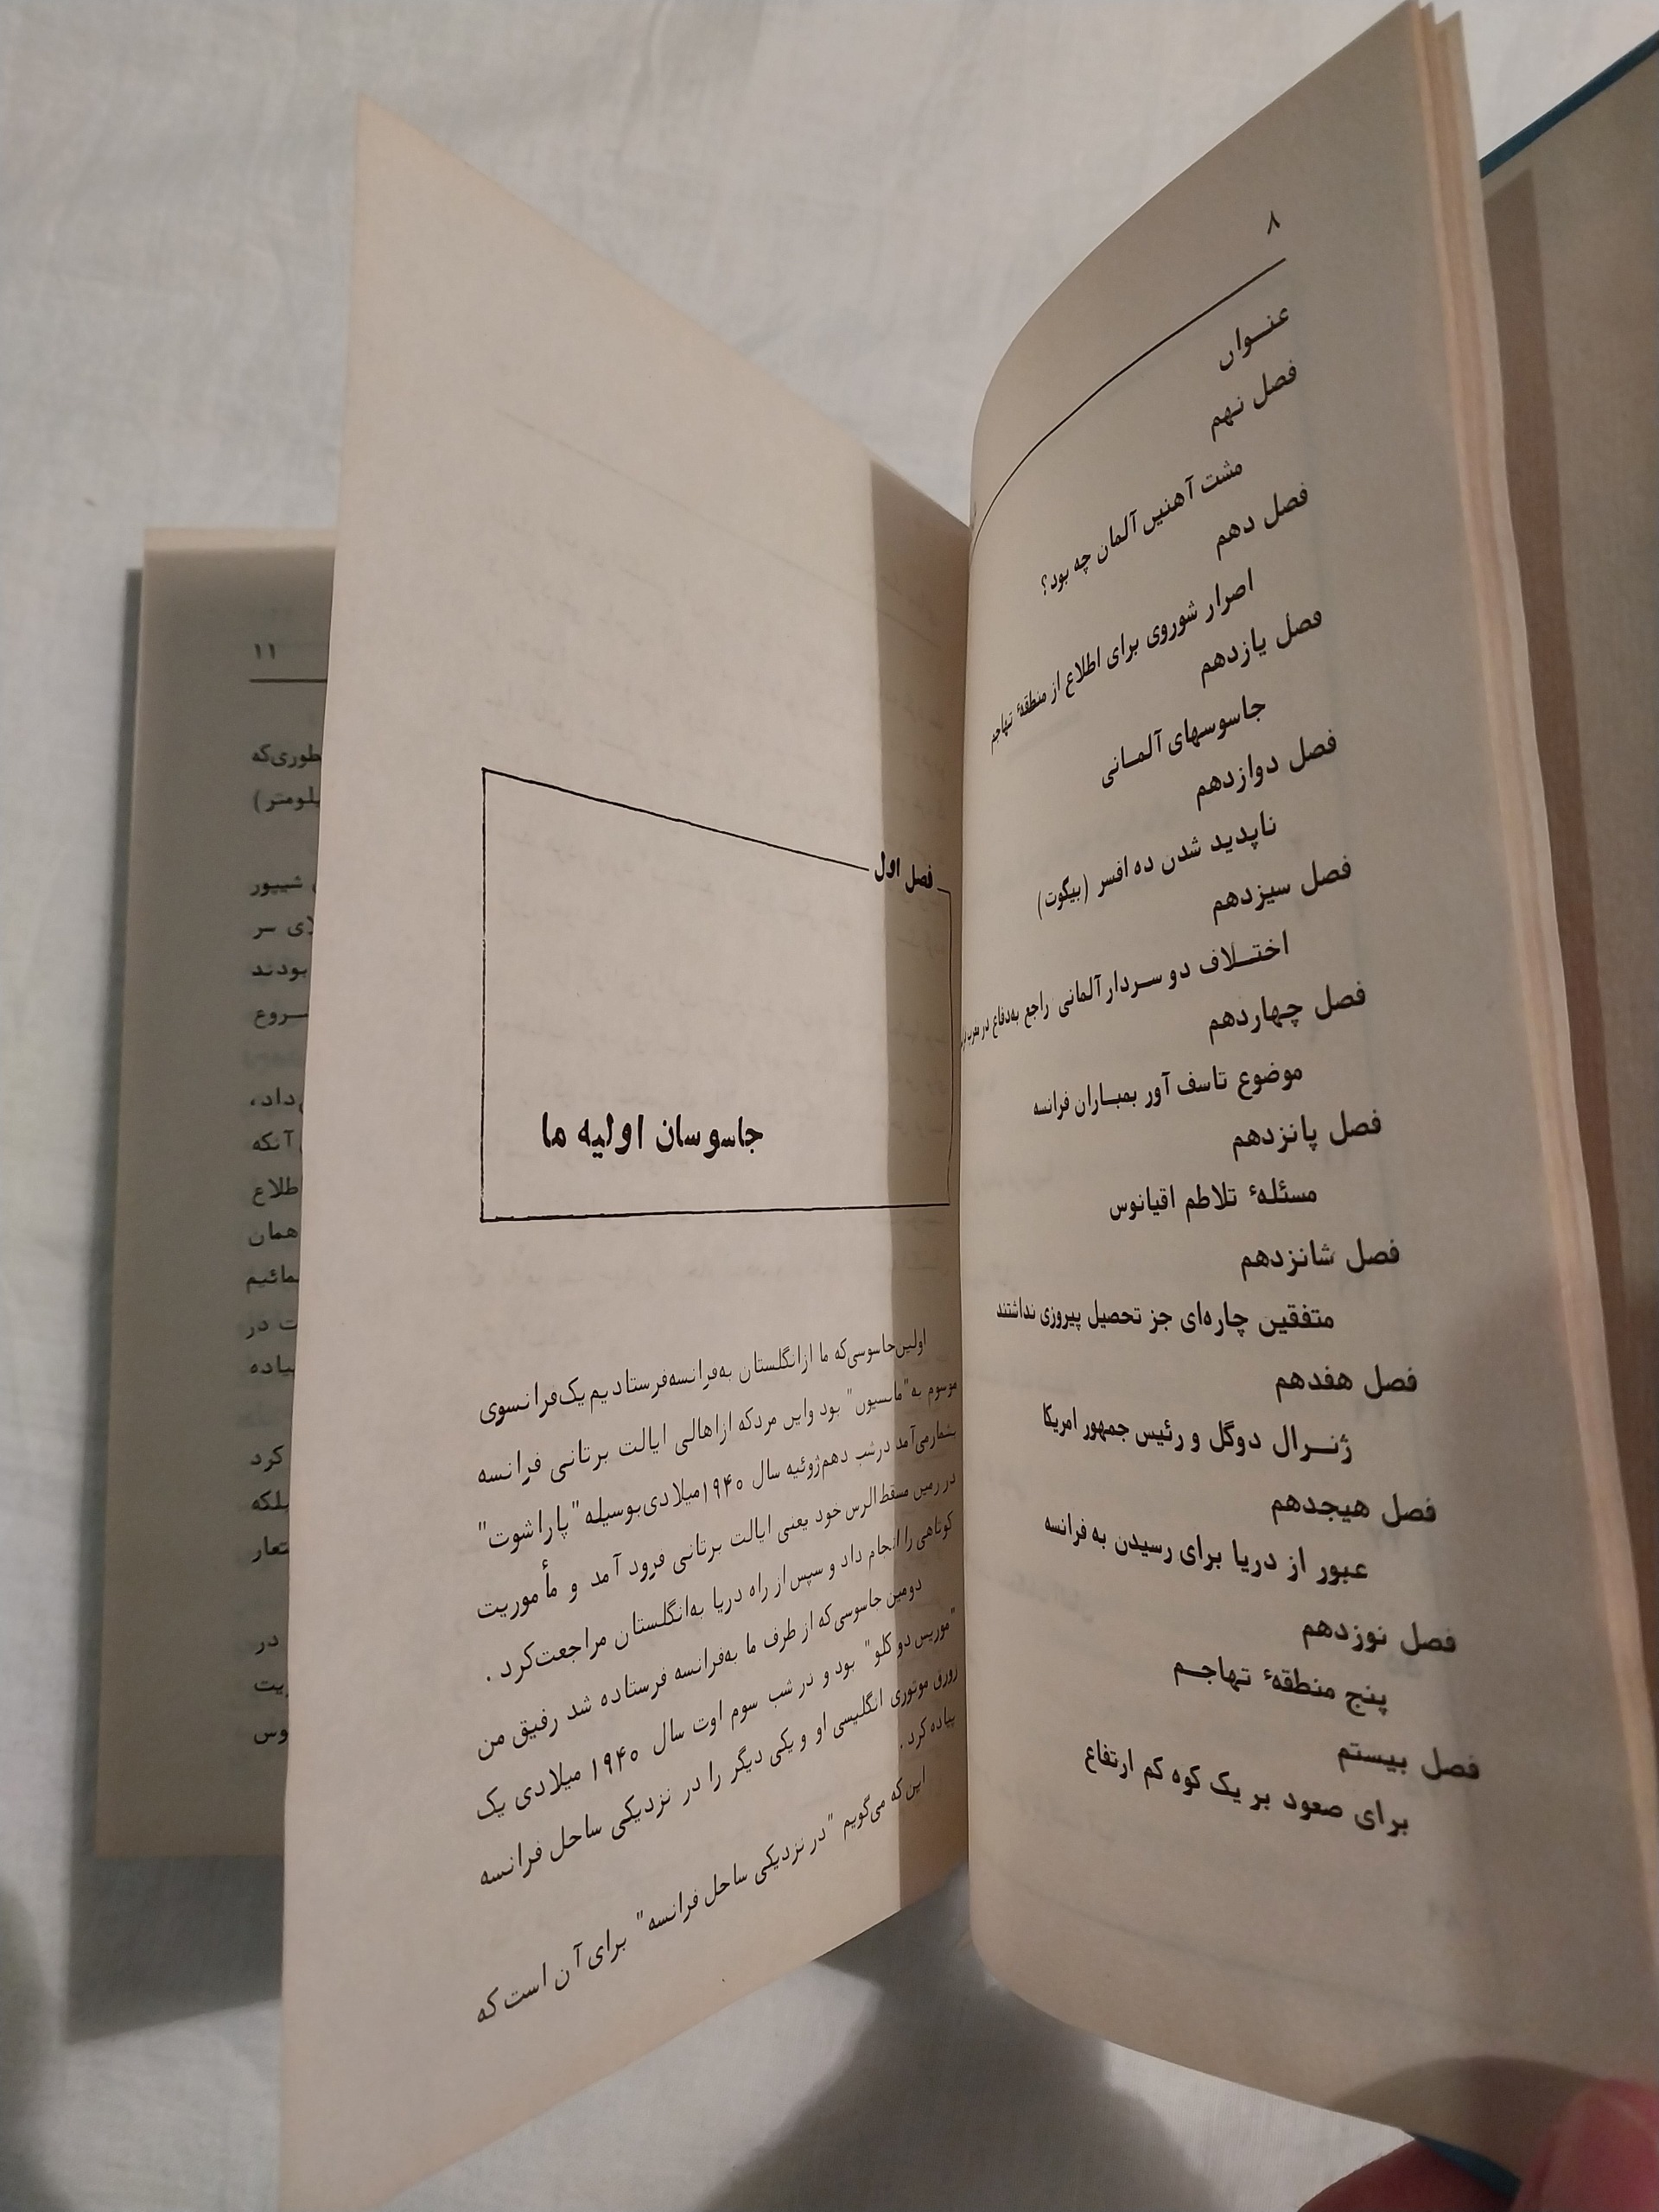 ۸
عنــوان
فصل نهم
مشت آهنین آلمان چه بود؟
فصل دهم
اصرار شوروی برای اطلاع از منطقهٔ تهاجم
فصل یازدهم
جاسوسهای آلمــانی
فصل دوازدهم
ناپدید شدن ده افسر (بیکوت)
فصل سیزدهم
اختــلاف دو ســردار آلمانی راجع به‌دفاع در
فصل چهاردهم
موضوع تاسف آور بمبــاران فرانسه
فصل پانزدهم
مسئلهٔ تلاطم اقیانوس
فصل شانزدهم
متفقین چاره‌ای جز تحصیل پیروزی نداشتند
فصل هفدهم
ژنــرال دوگل و رئیس جمهور امریکا
فصل هیجدهم
عبور از دریا برای رسیدن به فرانسه
فصل نوزدهم
پنج منطقهٔ تهاجــم
فصل بیستم
برای صعود بر یک کوه کم ارتفاع
فصل اول
جاسوسان اولیه ما
اولین‌جاسوسی‌که ما ازانگلستان به‌فرانسه‌فرستادیم‌یک‌فرانسوی
موسوم به"مانسیون" بود واین مردکه ازاهالی ایالت برتانی فرانسه
بشمارمی‌آمد درشب دهم‌ژوئیه سال ۱۹۴۰میلادی‌بوسیله "پاراشوت"
در زمین مسقط‌الرس خود یعنی ایالت برتانی فرود آمد و مأموریت
کوتاهی را انجام داد و سپس از راه دریا به‌انگلستان مراجعت‌کرد .
دومین جاسوسی‌که از طرف ما به‌فرانسه فرستاده شد رفیق من
"موریس دو کلو" بود و در شب سوم اوت سال ۱۹۴۰ میلادی یک
زورق موتوری انگلیسی او و یکی دیگر را در نزدیکی ساحل فرانسه
پیاده کرد .
این که می‌گویم "در نزدیکی ساحل فرانسه" برای آن است که
۱۱
شیپور
سر
بودند
آنکه
همان
در
کرد
در